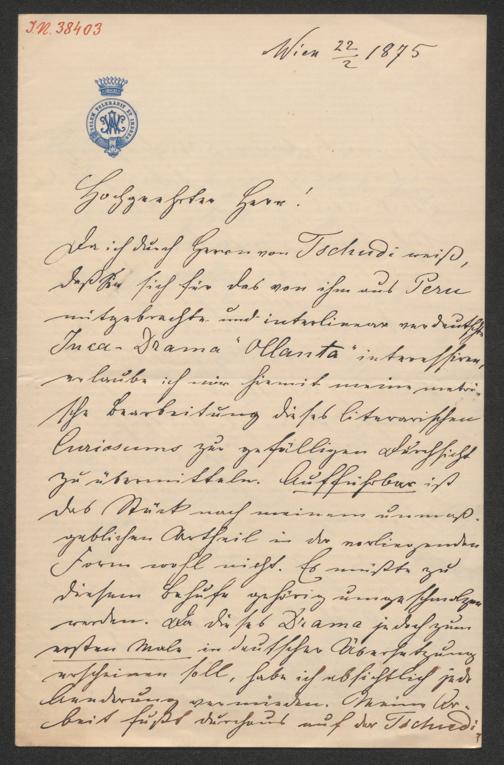 I.N. 38403
Wien 22/2 1875
Hochgeehrter Herr!
Da ich durch Herrn von Tschudi weiß,
daß Sie sich für das von ihm aus Peru
mitgebrachte und interlinear verdeutschte
Inca-Drama "Ollanta" interessiren,
erlaube ich mir hiemit meine metri-
sche Bearbeitung dieses literarischen
Curiosums zur gefälligen Durchsicht
zu übermitteln. Aufführbar ist
das Stück nach meinem unmaß-
geblichen Urtheil in der vorliegenden
Form wohl nicht. Es müßte zu
diesem Behufe gehörig umgeschmolzen
werden. Da dieses Drama jedoch zum
ersten Male in deutscher Übersetzung
erscheinen soll, habe ich absichtlich jede
Aenderung vermieden. Meine Ar-
beit fußt durchaus auf der Tschudi